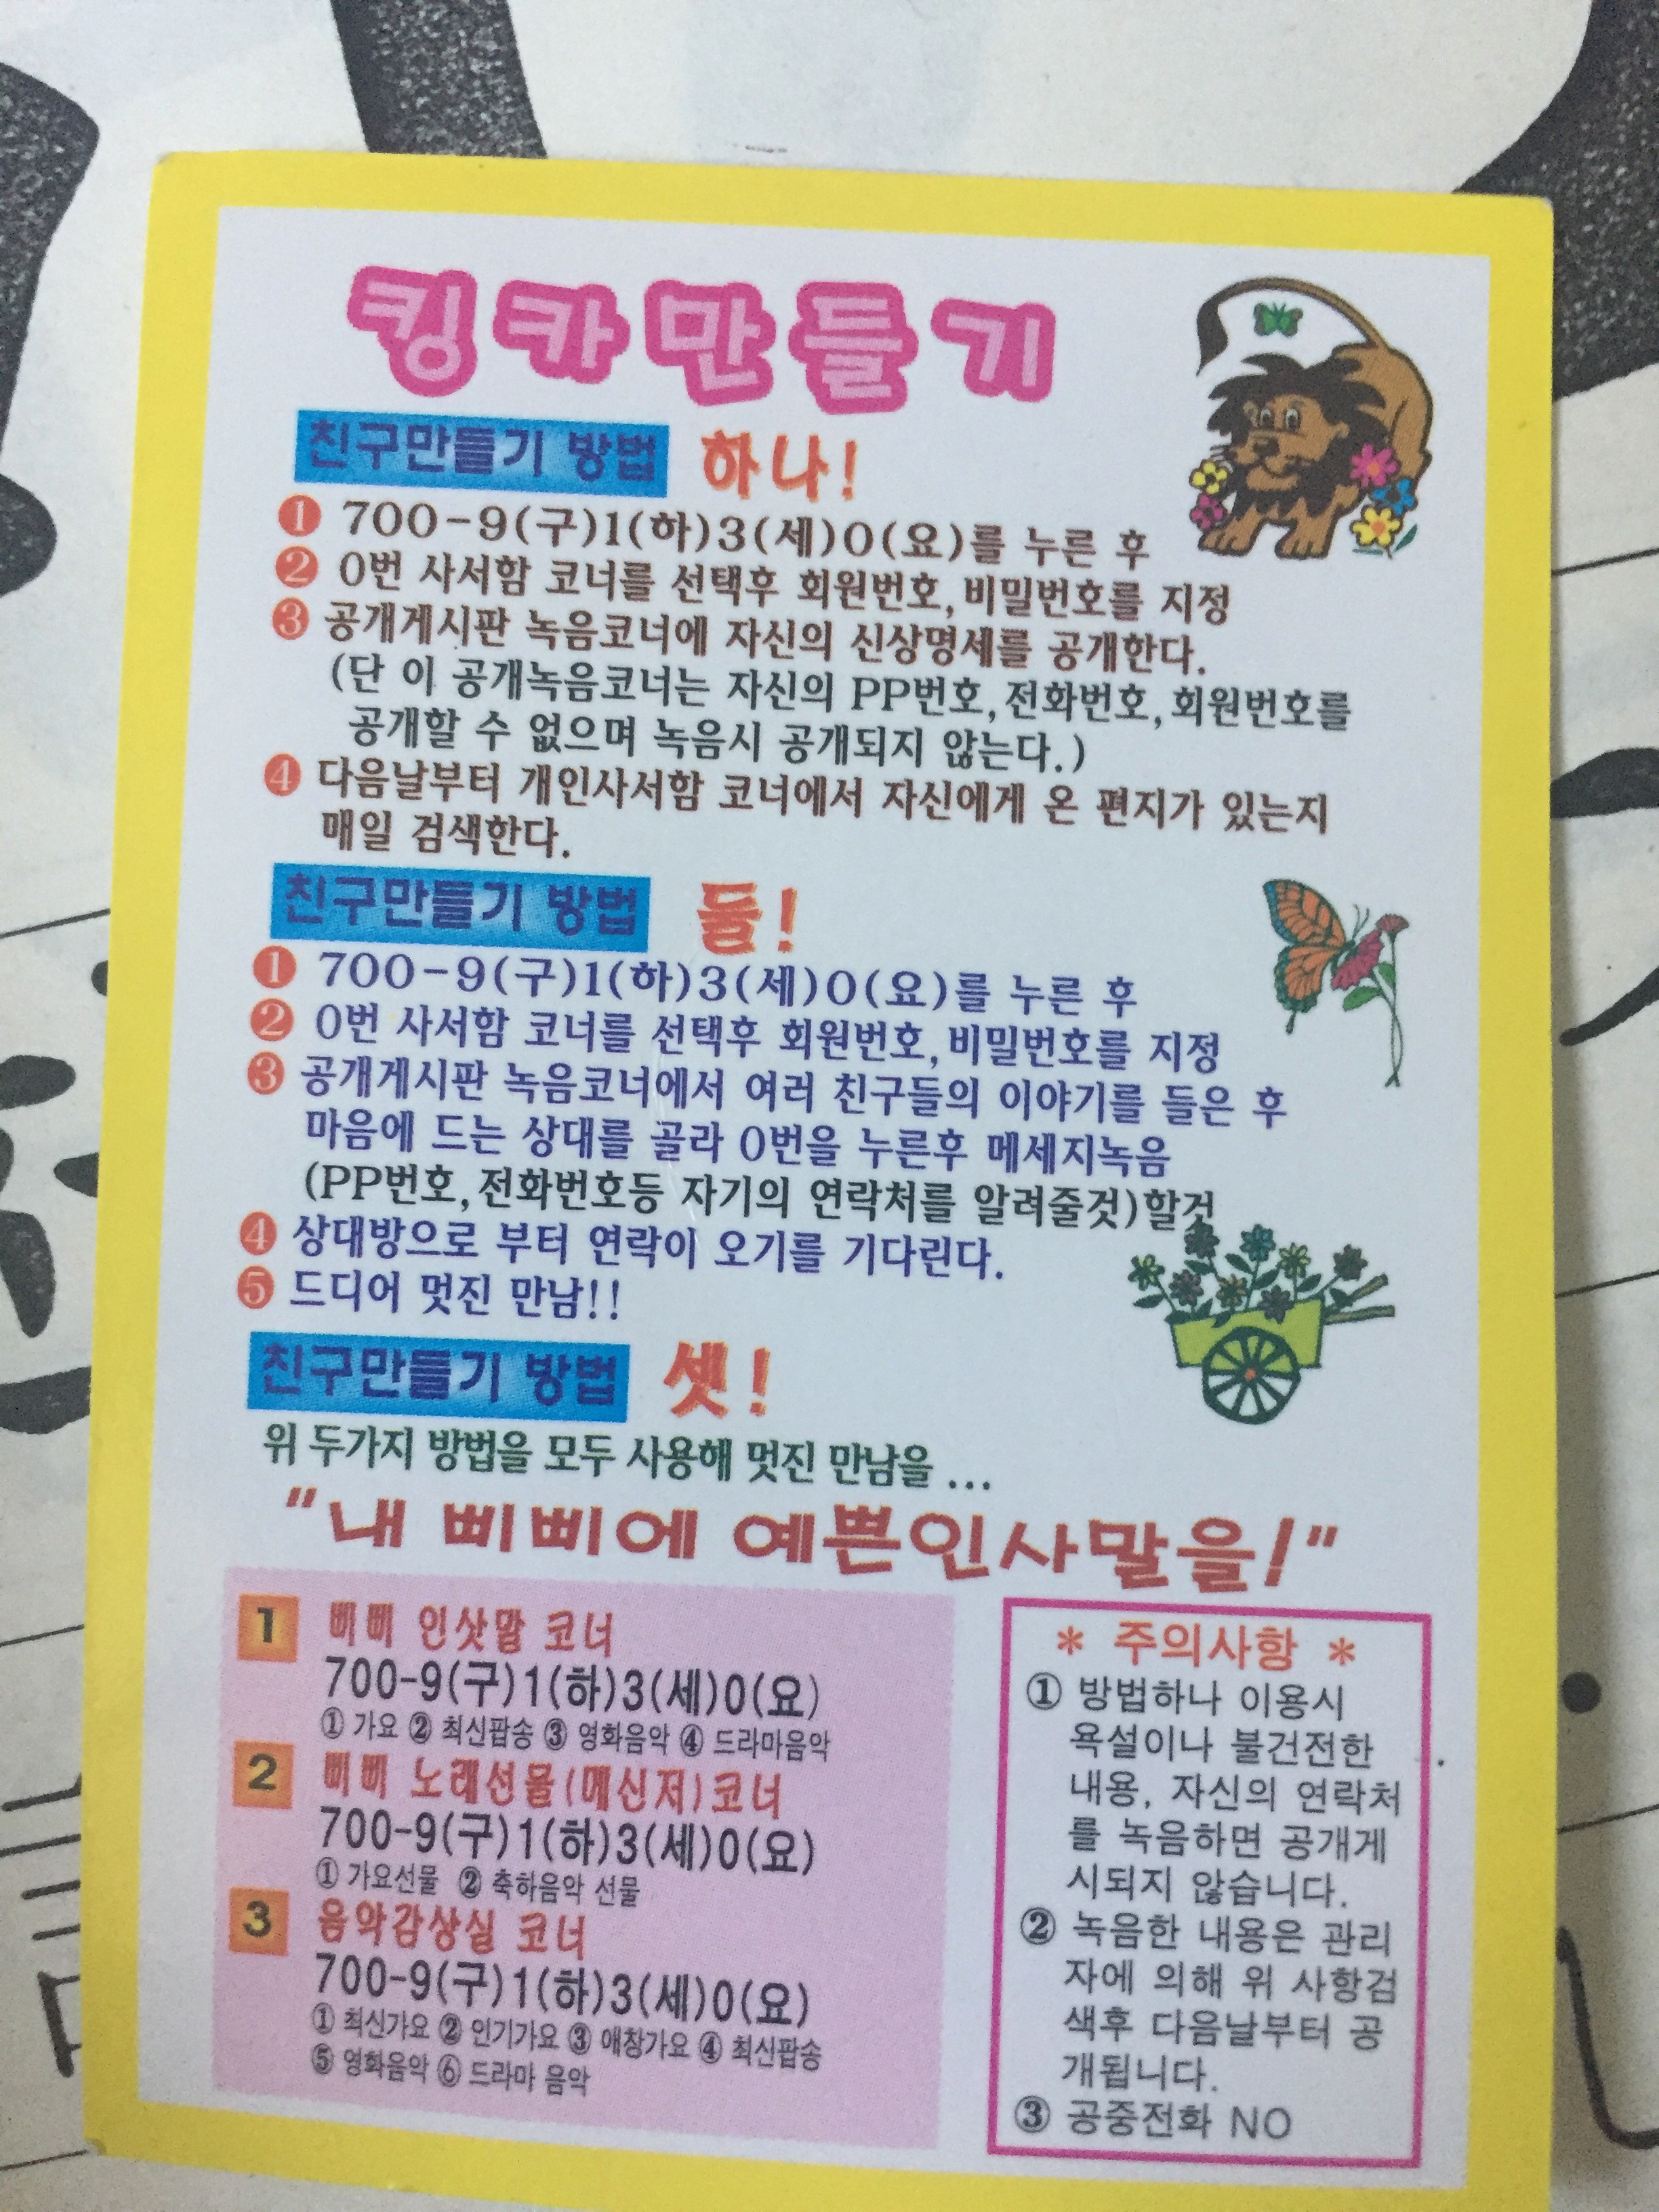 킹카만들기
친구만들기 방법 하나!
❶ 700-9(구)1(하)3(세)0(요)를 누른 후
❷ 0번 사서함 코너를 선택후 회원번호,비밀번호를 지정
❸ 공개게시판 녹음코너에 자신의 신상명세를 공개한다.
(단 이 공개녹음코너는 자신의 PP번호,전화번호,회원번호를
공개할 수 없으며 녹음시 공개되지 않는다.)
❹ 다음날부터 개인사서함 코너에서 자신에게 온 편지가 있는지
매일 검색한다.
친구만들기 방법 둘!
❶ 700-9(구)1(하)3(세)0(요)를 누른 후
❷ 0번 사서함 코너를 선택후 회원번호,비밀번호를 지정
❸ 공개게시판 녹음코너에서 여러 친구들의 이야기를 들은 후
마음에 드는 상대를 골라 0번을 누른후 메세지녹음
(PP번호,전화번호등 자기의 연락처를 알려줄것)할것
❹ 상대방으로 부터 연락이 오기를 기다린다.
❺ 드디어 멋진 만남!!
친구만들기 방법 셋!
위 두가지 방법을 모두 사용해 멋진 만남을 ...
"내 삐삐에 예쁜인사말을!"
1 삐삐 인삿말 코너
700-9(구)1(하)3(세)0(요)
① 가요 ② 최신팝송 ③ 영화음악 ④ 드라마음악
2 삐삐 노래선물(메신저)코너
700-9(구)1(하)3(세)0(요)
① 가요선물 ② 축하음악 선물
3 음악감상실 코너
700-9(구)1(하)3(세)0(요)
① 최신가요 ② 인기가요 ③ 애창가요 ④ 최신팝송
⑤ 영화음악 ⑥ 드라마 음악
* 주의사항 *
① 방법하나 이용시
욕설이나 불건전한
내용, 자신의 연락처
를 녹음하면 공개게
시되지 않습니다.
② 녹음한 내용은 관리
자에 의해 위 사항검
색후 다음날부터 공
개됩니다.
③ 공중전화 NO